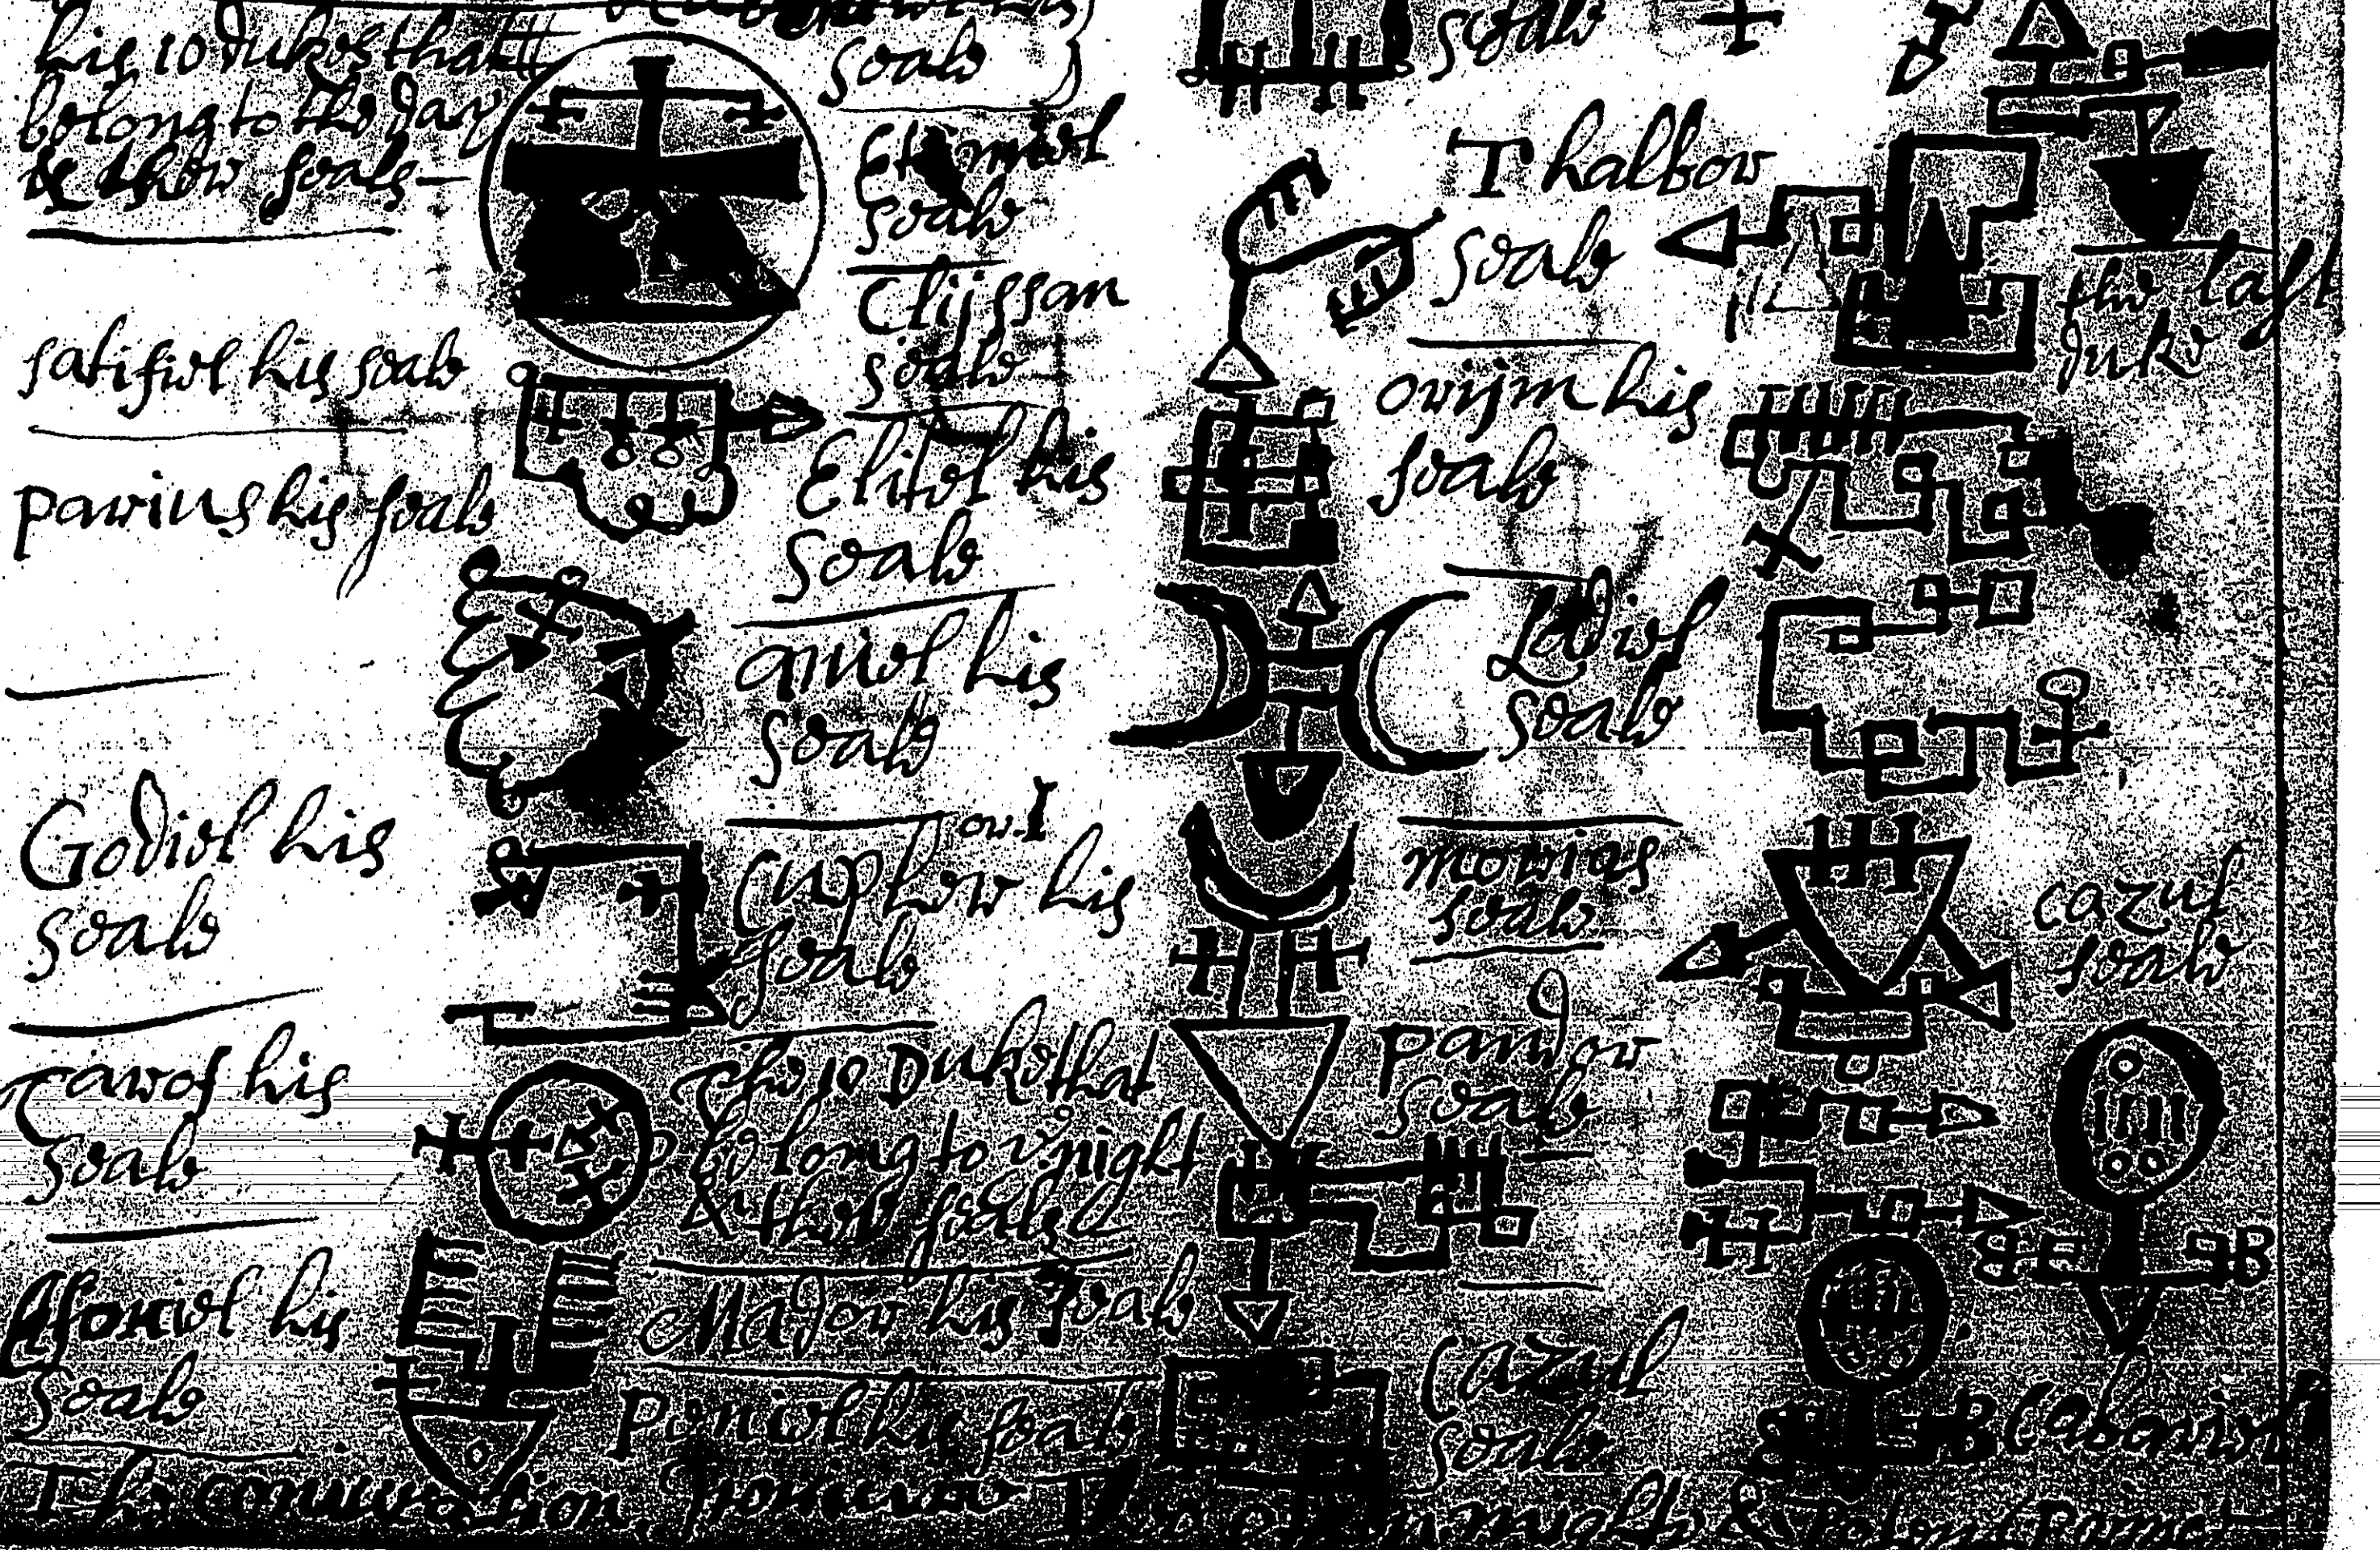 his 10 dukes that
belong to the day
& their seals
satifiel his seale
parius his seale
Godiel his
seale
Taros his
seale
Asoriel his
seale
seale
Etimiel
seale
Clijssan
seale
Elitel his
seale
aniel his
seale
or I
Cuphor his
seale
The 10 Duke that
belong to ye night
& their seales
Mador his seale
Peniel his seale
seale
Thalbor
seale
orijm his
seale
Ladiel
seale
morias
seale
pandor
seale
Cazul
seale
the last
duke
cazul
seale
Cabariel
The coniuration
might &